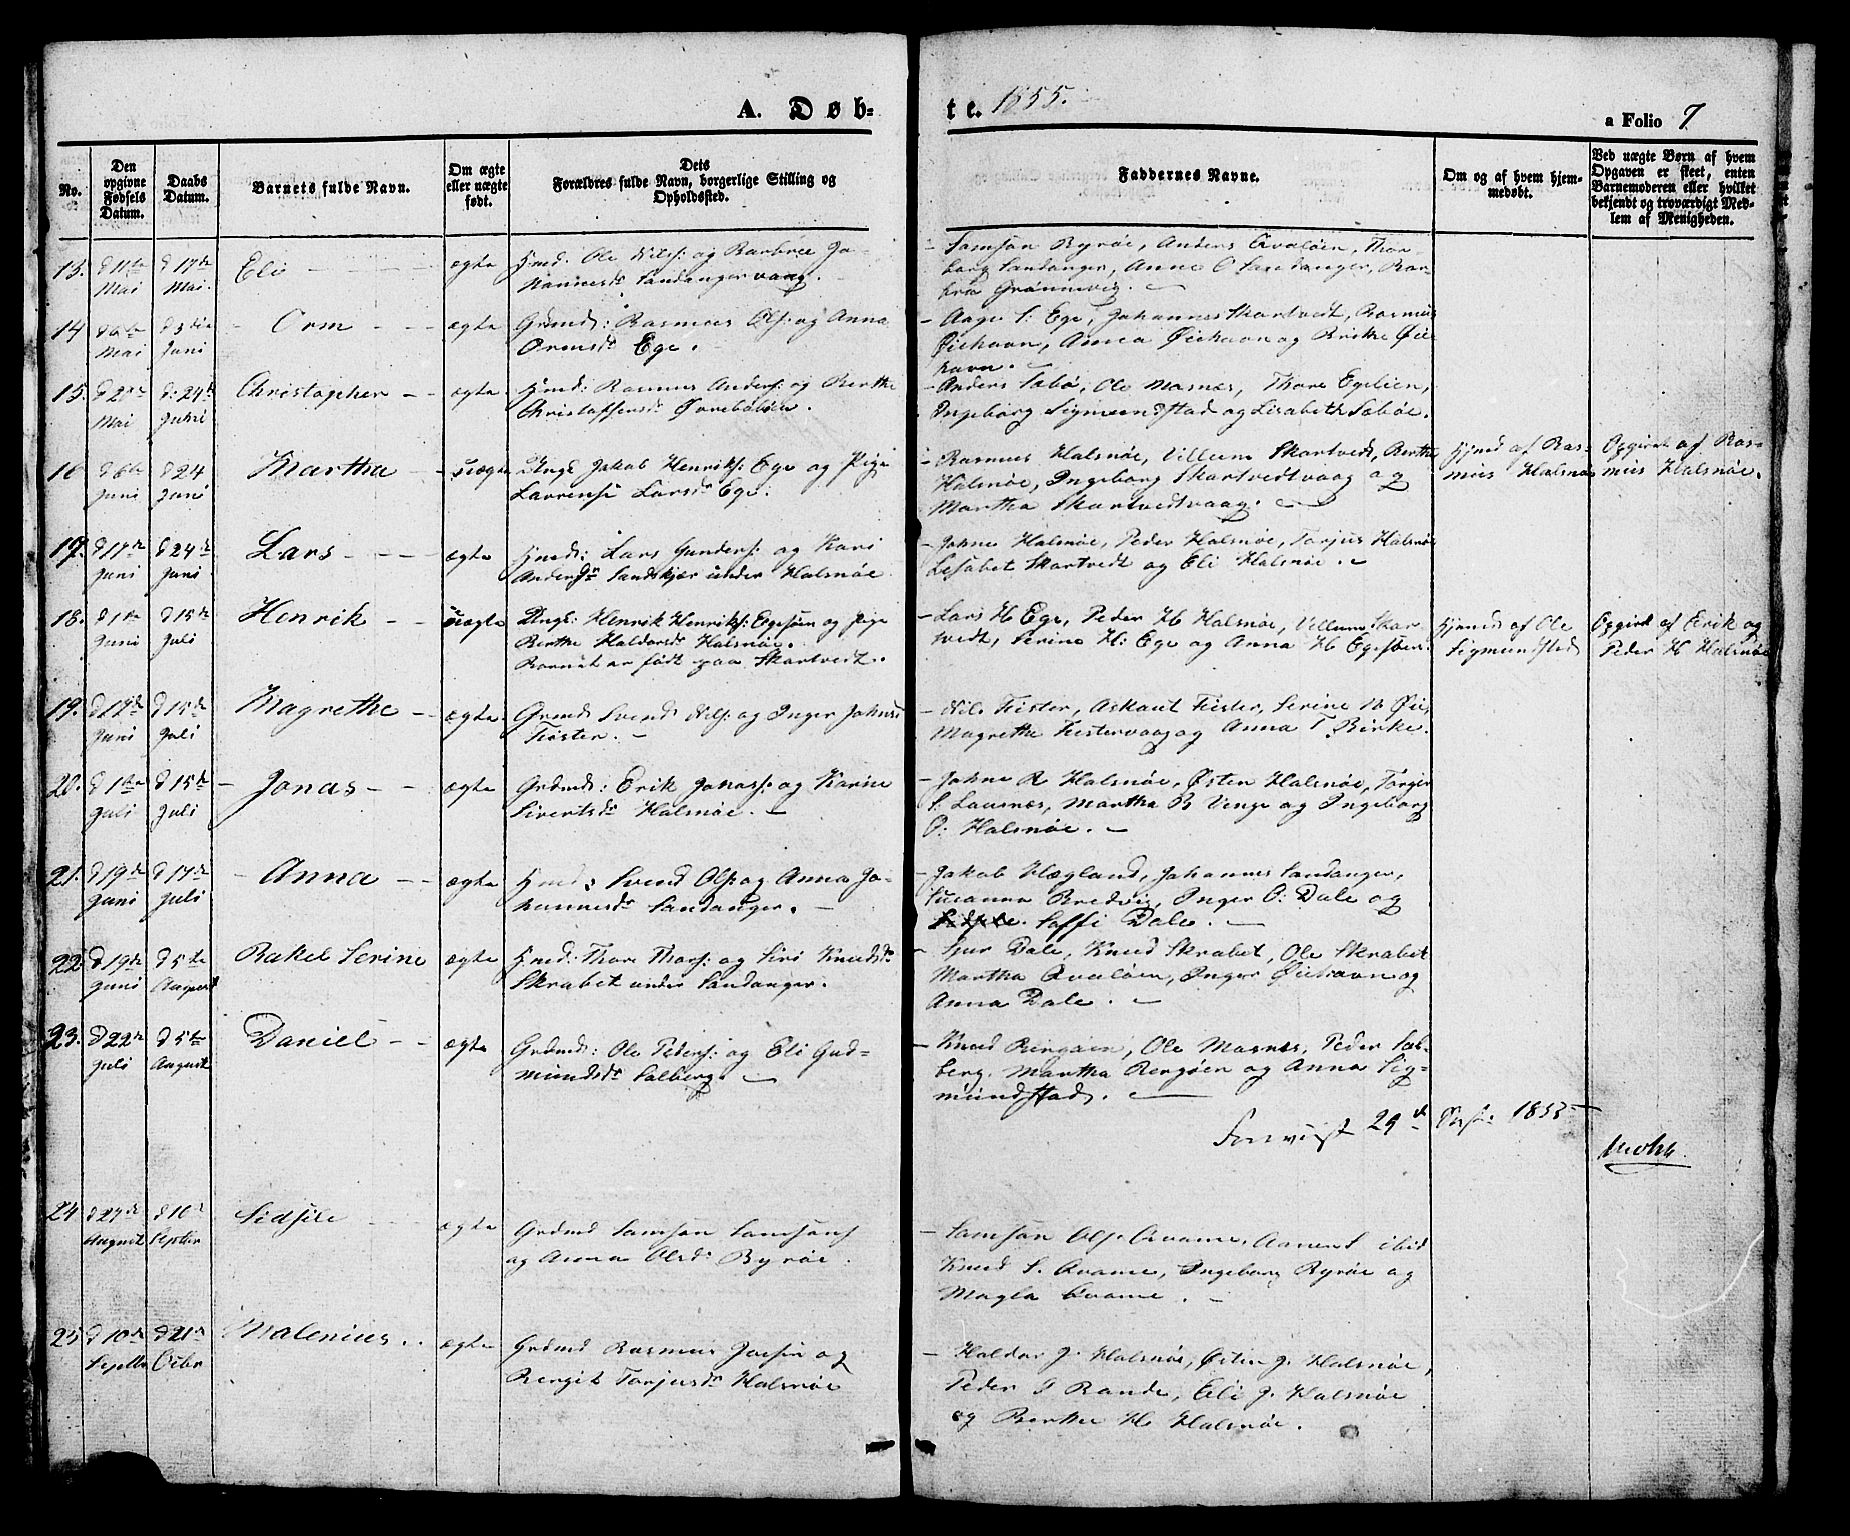 A. Døb-
te. 1855.
a Folio 7
No.
Den opgivne Fødsels Datum.
Daabs Datum.
Barnets fulde Navn.
Om ægte eller uægte født.
Dets Forældres fulde Navn, borgerlige Stilling og Opholdssted.
Faddernes Navne.
Om og af hvem hjemmedøbt.
Ved uægte Børn af hvem Opgaven er skeet, enten Barnemoderen eller hvilket bekjendt og troværdigt Medlem af Menigheden.
13. d 11te Mai d 17de Mai. Eli ægte Hmd. Ole Nils: og Barbroe Jo-
hannesdr Sandangervaag
Samson Byrøe, Anders Qvaløen, Thor-
borg Sandanger, Anne O Sandanger, Bar-
bra Grønnevig.
14 d 6te Mai d 3die Juni Orm ægte Grmd: Rasmus Ols: og Anna
Ormsdr Ege.
Aage S. Ege, Johannes Skartvedt, Rasmus
Øiehavn, Anna Øiehavn og Brithe Øie
havn.
15. d 2den Mai d: 24de Juni Christopher ægte Hmd: Rasmus Anders: og Berthe
Christoffersdr Ørnebøløen.
Anders Sabø, Ole Masnæs, Thore Egelien,
Ingeborg Sigmundstad og Lisabeth Sabøe.
16 d 6te Juni d 24 Juni Martha uægte Ungk Jakob Henriks: Ege og Pige
Lavrense Larsdr Ege.
Rasmus Halsnøe, Villum Skartvedt, Berthe
Halsnøe, Ingeborg Skartvedtvaag og
Martha Skartvedtvaag.
Hjmd af Ras-
mus Halsnøe
Opgivet af Ras-
mus Halsnøe.
17. d 17de Juni d 24de Juni Lars ægte Hmd: Lars Gunders: og Kari
Andersdr Sandskjær under Halsnøe
Johne Halsnøe, Peder Halsnøe, Torjus Halsnøe
Lisabet Skartvedt og Eli Halsnøe.
18. d 1ste Juni d 15de Juli Henrik uægte Ungk: Henrik Henriks: Egesøen og Pige
Berthe Haldorsdr Halsnøe.
Barnet er født paa Skartvedt.
Lars H Ege, Peder H Halsnøe, Villum Skar
tvedt, Serine H: Ege og Anna H Egesøen
Hjemd af Ole
Sigmundstad
Opgivet af Erik og
Peder H Halsnøe
19. d 17de Juni d 15de Juli Magrethe ægte Grmd Svend Nils: og Inger Johnsdr
Fister.
Nils Fister, Askaut Fister, Serine N Øie,
Magrethe Fistervaag og Anna T Birke.
20. d 1ste Juli d 15de Juli Jonas ægte Grdmd: Erik Jonas: og Karine
Sivertsdr Halsnøe.
Johne R Halsnøe, Østen Halsnøe, Torger
S. Lausnes, Martha B Venge og Ingeborg
O: Halsnøe.
21. d 19de Juni d 17de Juli Anna ægte Hmd: Svend Ols: og Anna Jo-
hannesdr Sandanger.
Jakob Hægland, Johannes Sandanger,
Susanna Bredvig, Inger O: Dale og
Soffi Dale.
22. d 19de Juni d 5te August Rakel Serine ægte Hmd: Thore Thors: og Siri Knudsdr
Skrabet under Sandanger.
Sjur Dale, Knud Skrabet, Ole Skrabet
Martha Qvaløen, Inger Øiehavn og
Anna Dale.
23. d 22de Juli d 5te August Daniel ægte Grdmd: Ole Peders: og Eli Gud-
mundsdr Salberg.
Knud Bergøen, Ole Masnes, Peder Sal-
berg. Martha Bergøen og Anna Sig-
mundstad.
Forevist 29d
24 d 27de August d 16de Septbr Sidsele ægte Grdmd Samson Samsons
og Anna Olsdr Byrøe.
Samson Ols: Qvame, Aanen S ibid
Knud S. Qvame, Ingeborg Byrøe og
Magla Qvame.
25 d 10de Septbr d 21de Octbr Malenius ægte Grdmd Rasmus Joesen og
Bergit Torjusdr Halsnøe
Haldor J. Halsnøe, Østen J. Halsnøe,
Peder T Rande, Eli J. Halsnøe
og Berthe H. Halsnøe.